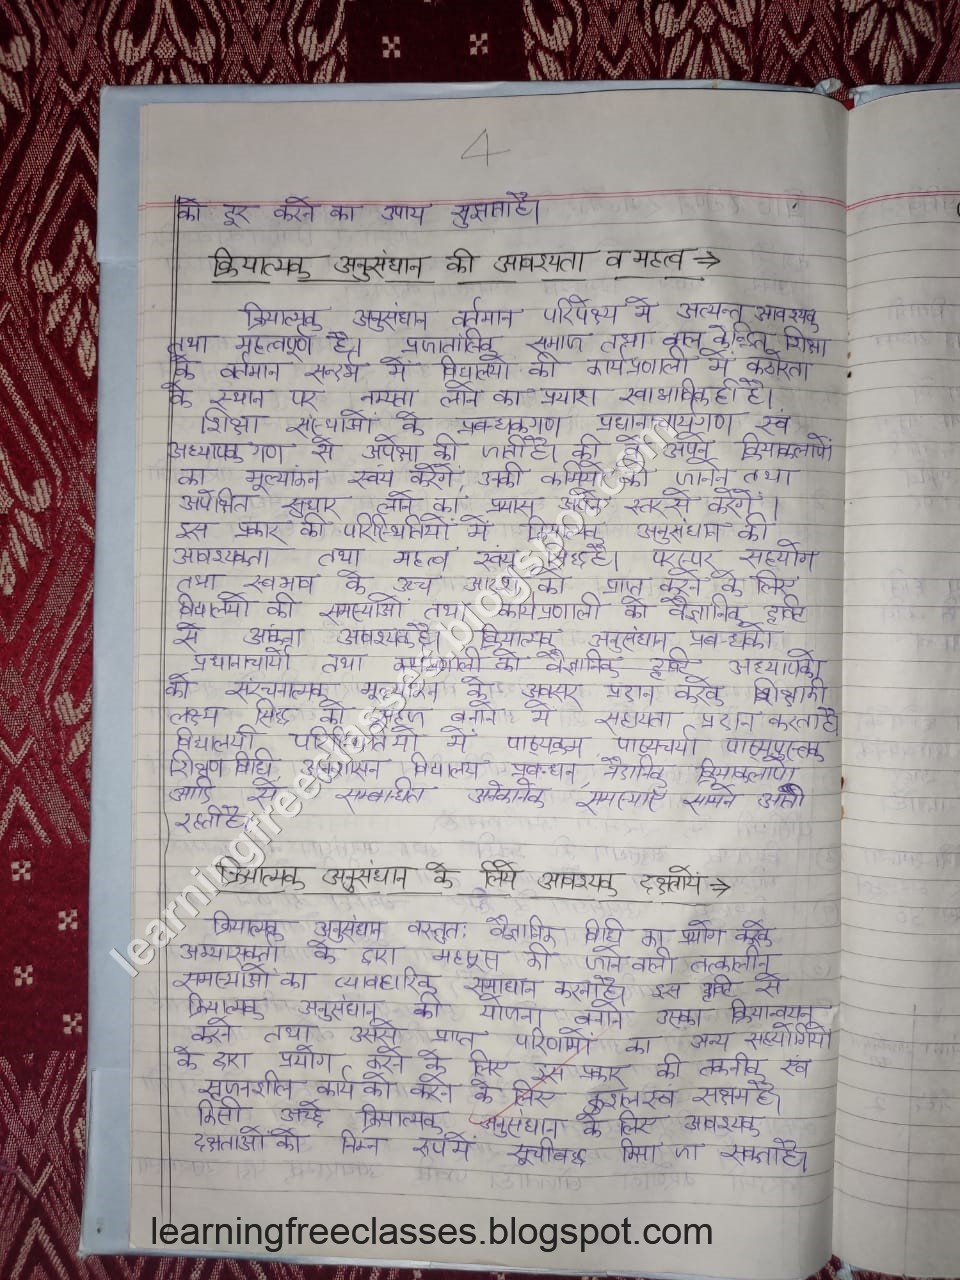 4
को दूर करने का उपाय सुझाता है।
क्रियात्मक अनुसंधान की आवश्यता व महत्व →
क्रियात्मक अनुसंधान वर्तमान परिपेक्ष्य में अत्यन्त आवश्यक
तथा महत्वपूण है। प्रजातांत्रिक समाज तथा बाल केन्द्रित शिक्षा
के वर्तमान सन्दर्भ में विद्यालयों की कार्यप्रणाली में कठोरता
के स्थान पर नम्यता लाने का प्रयास स्वाभाविक ही है।
शिक्षा संस्थाओं के प्रबन्धकगण प्रधानाचार्यगण एवं
अध्यापक गण से अपेक्षा की जाती है। की वे अपने क्रियाकलापों
का मूल्यांकन स्वयं करेंगे, उनकी कमियों को जानने तथा
अपेक्षित सुधार लाने का प्रयास अपने स्तर से करेंगे ।
इस प्रकार की परिस्थितियों में क्रियात्मक अनुसंधान की
आवश्यकता तथा महत्व स्वयं सिद्ध है। परस्पर सहयोग
तथा स्वभाव के उच्च आदर्श को प्राप्त करने के लिए
विद्यालयों की समस्याओं तथा कार्यप्रणाली को वैज्ञानिक दृष्टि
से आंकना आवश्यक है। क्रियात्मक अनुसंधान प्रबन्धकों
प्रधानाचार्यों तथा कार्यप्रणाली को वैज्ञानिक दृष्टि अध्यापकों
को संरचनात्मक मूल्यांकन के अवसर प्रदान करके शिक्षा की
लक्ष्य सिद्धि को सहज बनाने में सहायता प्रदान करता है
विद्यालयी परिस्थितियों में पाठ्यक्रम पाठ्यचर्या पाठ्यपुस्तक
शिक्षण विधि अनुशासन विद्यालय प्रबन्धन शैक्षणिक क्रियाकलापों
आदि से सम्बन्धित अनेकानेक समस्याएं सामने आती
रहती है।
क्रियात्मक अनुसंधान के लिये आवश्यक दक्षतायें →
क्रियात्मक अनुसंधान वस्तुतः वैज्ञानिक विधि का प्रयोग करके
के द्वारा महसूस की जाने वाली तत्कालीन
समस्याओं का व्यावहारिक समाधान करना है। इस दृष्टि से
क्रियात्मक अनुसंधान की योजना बनाने उसका क्रियान्वयन
करने तथा उससे प्राप्त परिणामों का अन्य सहयोगियों
के द्वारा प्रयोग करने के लिए इस प्रकार की तकनीक एवं
सृजनशील कार्य को करने के लिए कुशल एवं सक्षम है।
किसी अच्छे क्रियात्मक अनुसंधान के लिए आवश्यक
दक्षताओं को निम्न रूप में सूचीबद्ध किया जा सकता है।
learningfreeclasses.blogspot.com
learningfreeclasses.blogspot.com